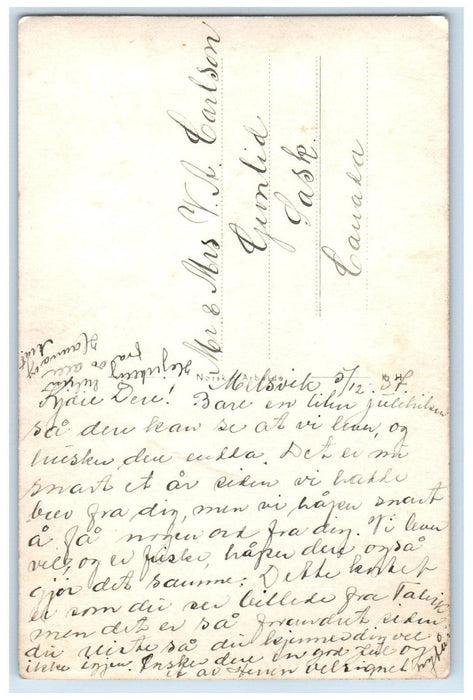 Mr & Mrs V. A. Carlson
Gunlid
Sask.
Canada
Norsk Arbeide
Melsvik 5/12. 37.
Kjære Dere! Bare en liten julehilsen
så dere kan se at vi lever, og
husker dere endda. Det er nu
snart et år siden vi hadde
brev fra dig, men vi håper snart
å få nogen ord fra dig. Vi lever
vel og er friske, håper dere også
gjør det samme. Dette kortet
er som du ser billede fra Talvik
men det er så forandret siden
du reiste så du kjenner dig vel
ikke igjen. Ønsker dere en god jul og
et av Herren velsignet nytår.
Hjertelig
fra
alle
Hanna og